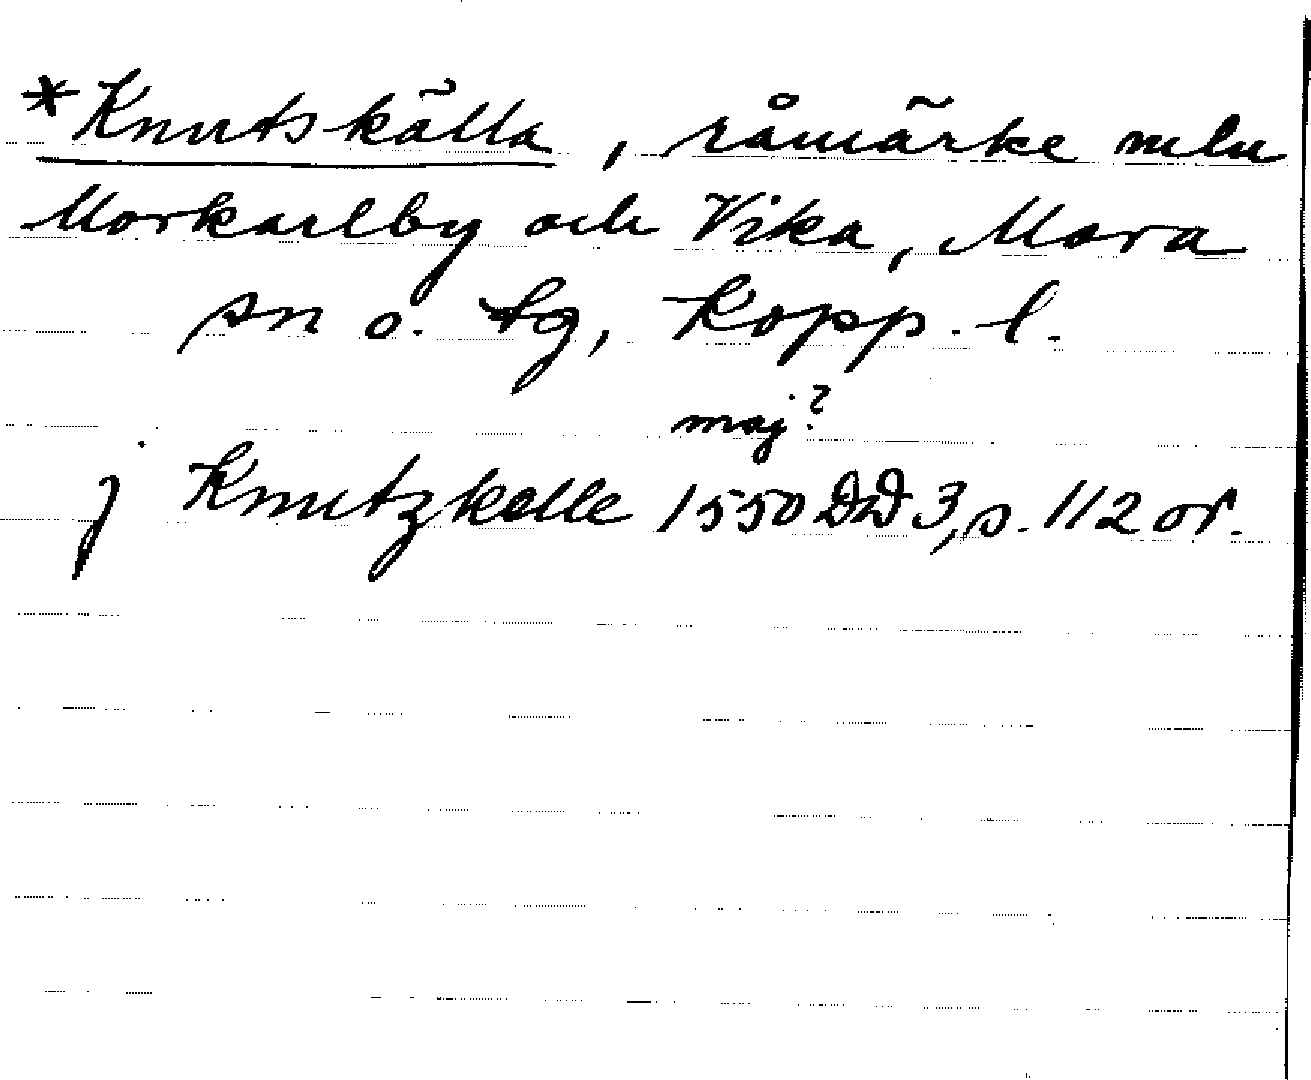 *Knutskälla, råmärke mln
Morkarlby och Vika, Mora
sn o. tg, Kopp. l.
maj?
j Knutzkelle 1550 DD 3, s. 112 or.